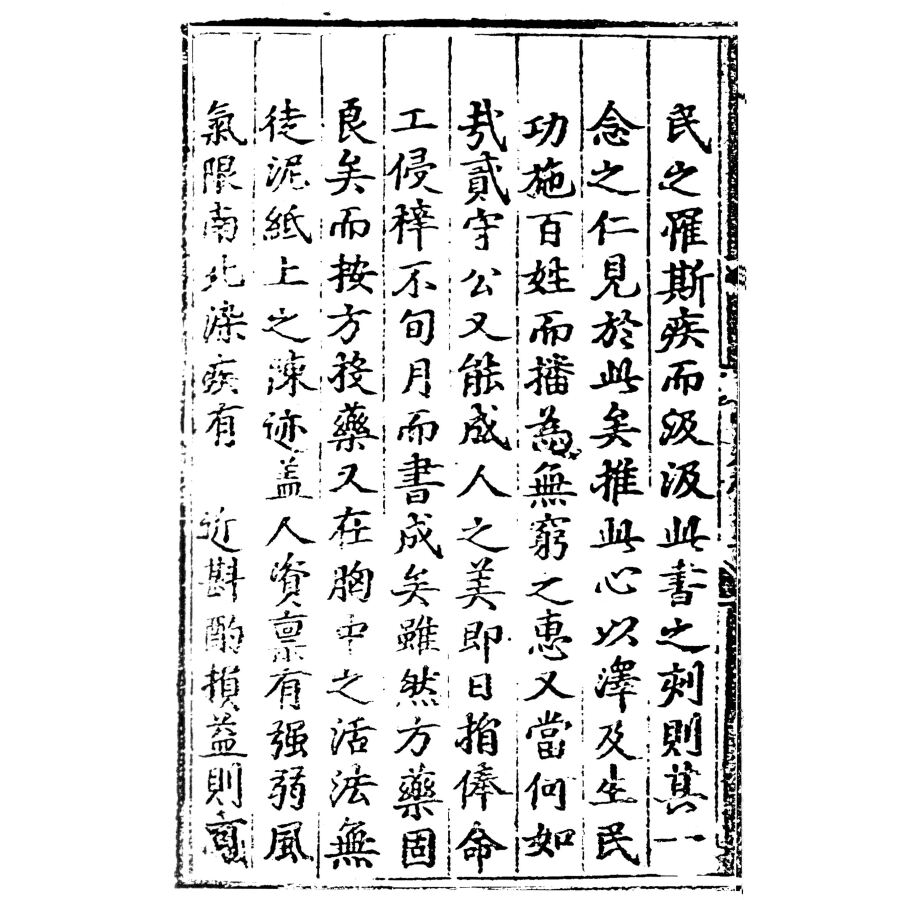 民之罹斯疾而汲汲此書之刻則其一
念之仁見於此矣推此心以澤及生民
功施百姓而播為無窮之惠又當何如
㢤貳守公又能成人之美即日捐俸命
工侵梓不旬月而書成矣雖然方藥固
良矣而按方投藥又在胸中之活法無
徒泥紙上之陳迹盖人資禀有强弱風
氣限南北染疾有 近斟酌損益則